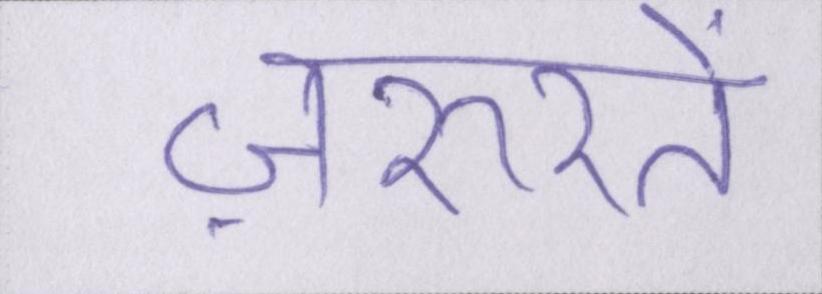 ज़रुरतें